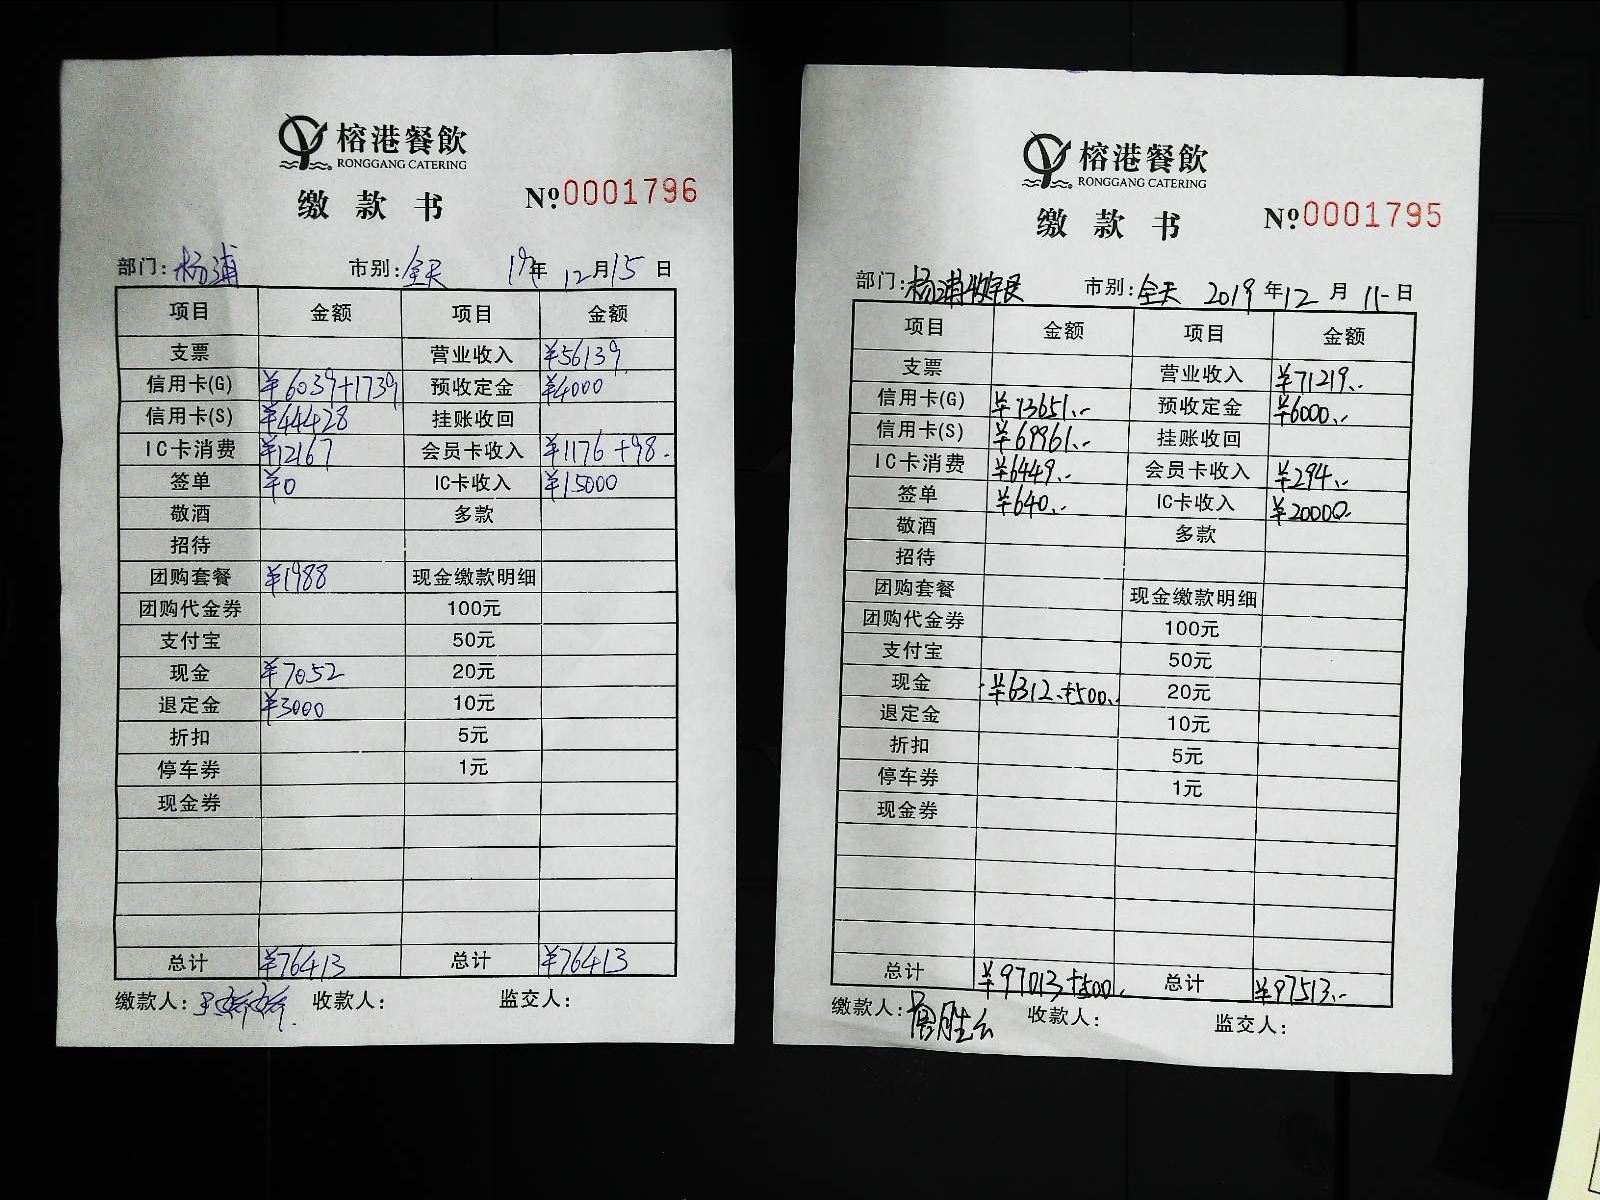 榕港餐飲
RONGGANG CATERING
缴款书 №0001796
部门:杨浦 市别:全天 19年12月15日
项目 金额 项目 金额
支票 营业收入 ¥56139
信用卡(G) ¥6039+1739 预收定金 ¥4000
信用卡(S) ¥44428 挂账收回
IC卡消费 ¥12167 会员卡收入 ¥1176+98.
签单 ¥0 IC卡收入 ¥15000
敬酒 多款
招待
团购套餐 ¥1988 现金缴款明细
团购代金券 100元
支付宝 50元
现金 ¥7052 20元
退定金 ¥3000 10元
折扣 5元
停车券 1元
现金券
总计 ¥76413 总计 ¥76413
缴款人: 收款人: 监交人:
榕港餐飲
RONGGANG CATERING
缴款书 №0001795
部门:杨浦 市别:全天 2019年12月11日
项目 金额 项目 金额
支票 营业收入 ¥71219.-
信用卡(G) ¥13651.- 预收定金 ¥6000.-
信用卡(S) ¥69961.- 挂账收回
IC卡消费 ¥6449.- 会员卡收入 ¥294.-
签单 ¥640.- IC卡收入 ¥20000.
敬酒 多款
招待
团购套餐 现金缴款明细
团购代金券 100元
支付宝 50元
现金 ¥6312.+500.- 20元
退定金 10元
折扣 5元
停车券 1元
现金券
总计 ¥97013+500. 总计 ¥97513.-
缴款人: 收款人: 监交人: